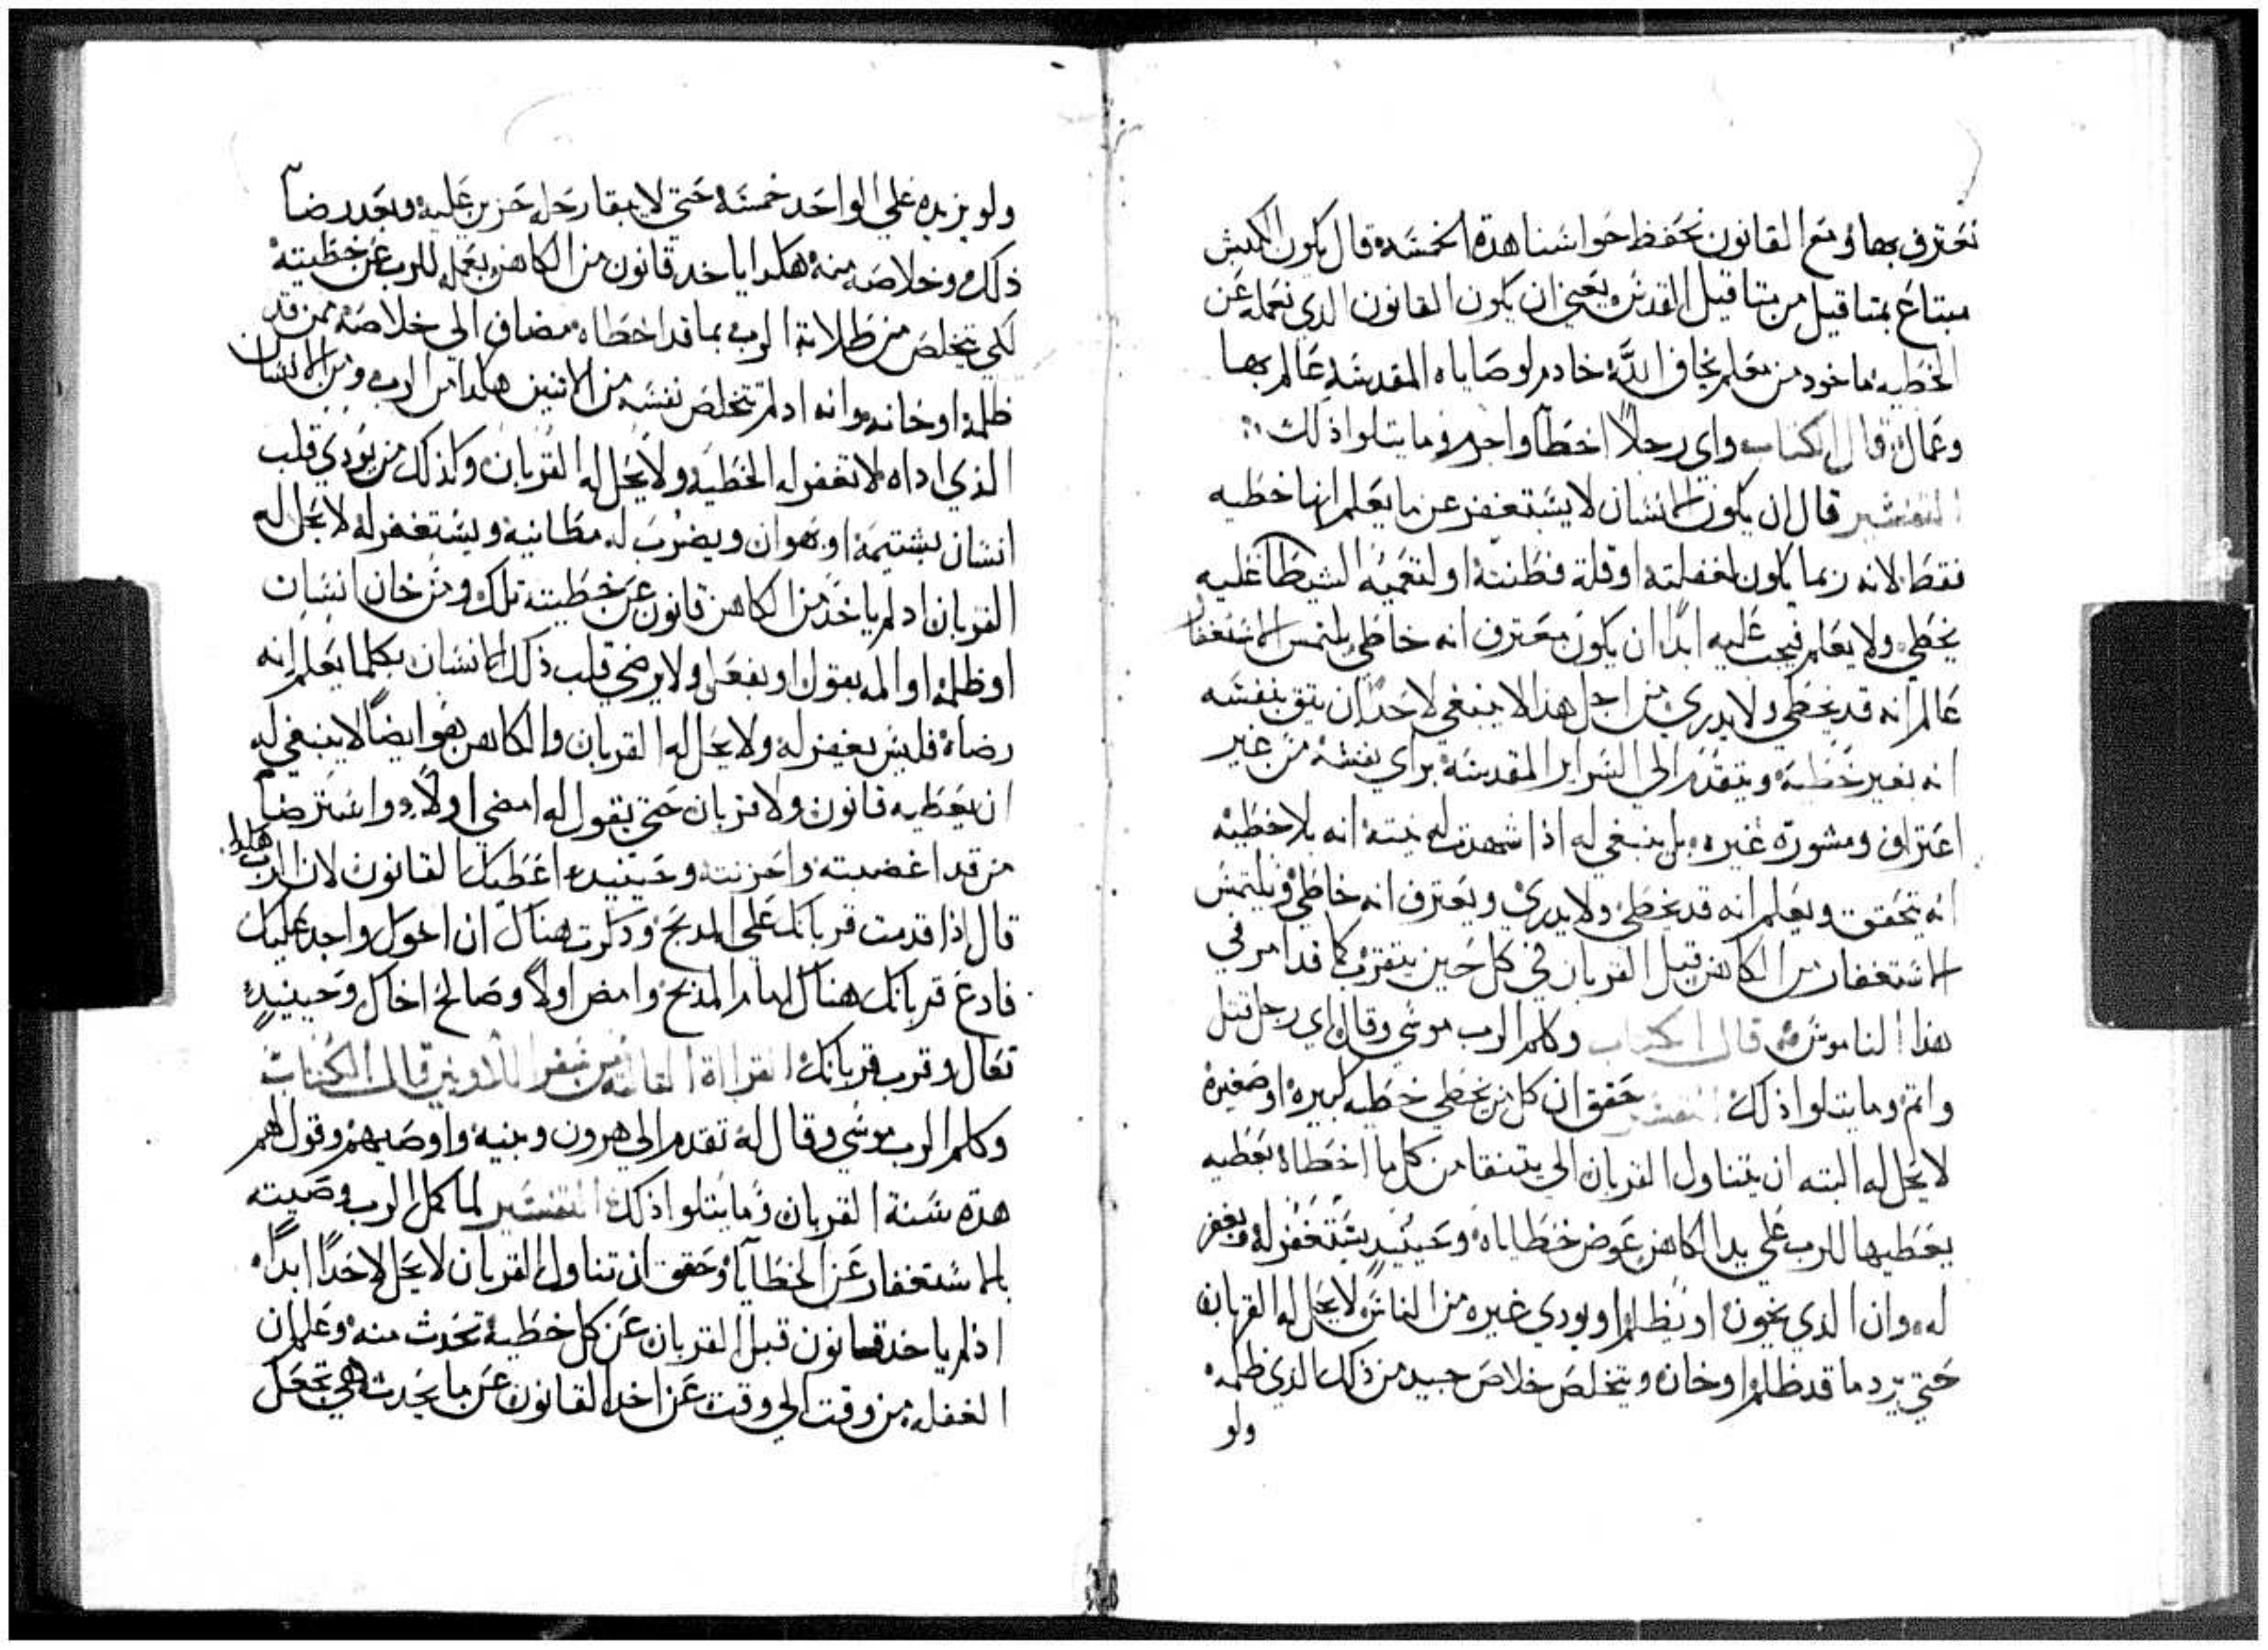 نعترف بها ومع القانون نحفظ حواسنا هده الخمسه قال يكون الكبش
مبتاع بمتاقيل من متاقيل القدس يعني ان يكون القانون الدي نعمله عن
الخطيه ماخود من معلم يخاف اللَّه خادم لوصاياه المقدسه عالم بها
وعمال قال الكتاب واي رجلاً اخطا واجرم وما يتلوا ذلك
التفسير قال ان يكون الانسان لا يستغفر عن ما يعلم انها خطيه
فقط لانه ربما يكون لغفلته او قلة فطنته او لتعميه الشيطان عليه
يخطي ولا يعلم فيجب عليه ابداً ان يكون معترف انه خاطي يلتمس الاستغفار
عالم انه قد يخطي ولا يدري من اجل هدا لا ينبغي لاحداً ان يتق بنفسه
انه بغير خطيه ويتقدم الي السراير المقدسه براي نفسه من غير
اعتراف ومشورة غيره بل ينبغي له اذا شهدت له نيته انه بلا خطيه
انه يتحقق ويعلم انه قد يخطي ولا يدري ويعترف انه خاطي ويلتمس
الاستغفار من الكاهن قبل القربان في كل حين يتقرب كما قد امر في
هذا الناموس قال الكتاب وكلم الرب موسي وقال اي رجل قتل
واتم وما يتلوا ذلك التفسير حقق ان كل من يخطي خطيه كبيره او صغيره
لا يحل له البته ان يتناول القربان الي يتنقا من كل ما اخطاه بعطيه
يعطيها للرب علي يد الكاهن عوض خطاياه وحينيد يستغفر له ويغفر
له وان الدي يخون او يظلم او يودي غيره من الناس لا يحل له القربان
حتي يرد ما قد ظلم او خان ويتخلص خلاص جيد من ذلك الذي ظلمه
ولو
ولو يزيده علي الواحد خمسه حتي لا يبقا رجل حزين عليه وبعد رضا
ذلك وخلاصه منه هكدا ياخد قانون من الكاهن يعمله للرب عن خطيته
لكي يتخلص من ظلامة الرب بما قد اخطاه مضاف الي خلاصه ممن قد
ظلمه او خانه وانه اد لم يتخلص نفسه من الاتنين هكدا من الرب ومن الانسان
الذي اداه لا تغفر له الخطيه ولا يحل له القربان وكذلك من يودي قلب
انسان بشتيمه او هوان ويضرب له مطانيه ويستغفر له لا يحل له
القربان اد لم ياخد من الكاهن قانون عن خطيته تلك ومن خان انسان
او ظلمه او المه بقول او بفعل ولا يرضي قلب ذلك الانسان بكلما يعلم انه
رضاه فليس يغفر له ولا يحل له القربان والكاهن هو ايضاً لا ينبغي له
ان يعطيه قانون ولا قربان حتي يقول له امضي اولاً واسترضا
من قد اغضبته واحزنته وحينيد اعطيك القانون لان الرب هكدا
قال اذا قدمت قربانك علي المدبح ودكرت هناك ان اخوك واجد عليك
فادع قربانك هناك امام المذبح وامض اولاً وصالح اخاك وحينيد
تعال وقرب قربانك القراة التالته من سفر اللاويين قال الكتاب
وكلم الرب موسي وقال له تقدم الي هرون وبنيه واوصيهم وقول لهم
هده سنة القربان وما يتلوا ذلك التفسير لما كمل الرب وصيته
بالاستغفار عن الخطايا وحقق ان تناول القربان لا يحل لاحداً ابداً
اذ لم ياخد قانون قبل القربان عن كل خطيه تحدث منه وعلم ان
الغفله من وقت الي وقت عن اخد القانون عن ما يحدث هي تجعل